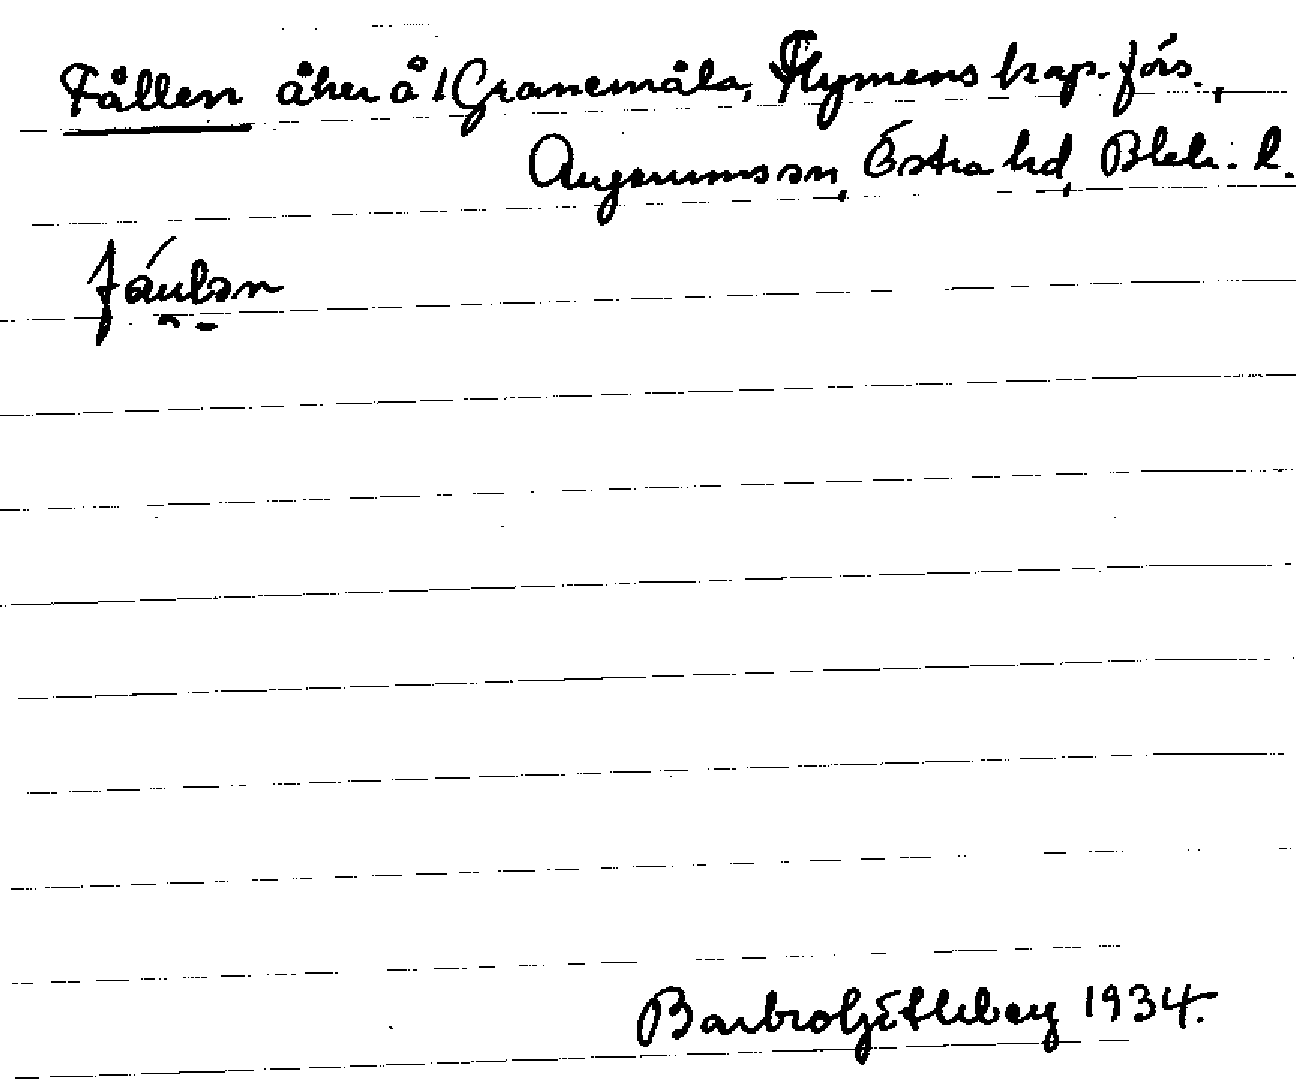 Fållen åker å 1 Granemåla, Flymens kap. förs.,
Augerums sn, Östra hd, Blek. l.
fáulən
Barbro Götleborg 1934.